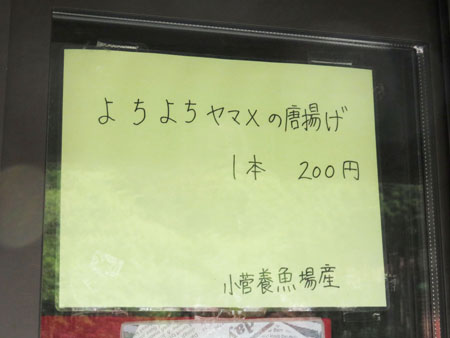 よちよちヤマメの唐揚げ
1本 200円
小菅養魚場産